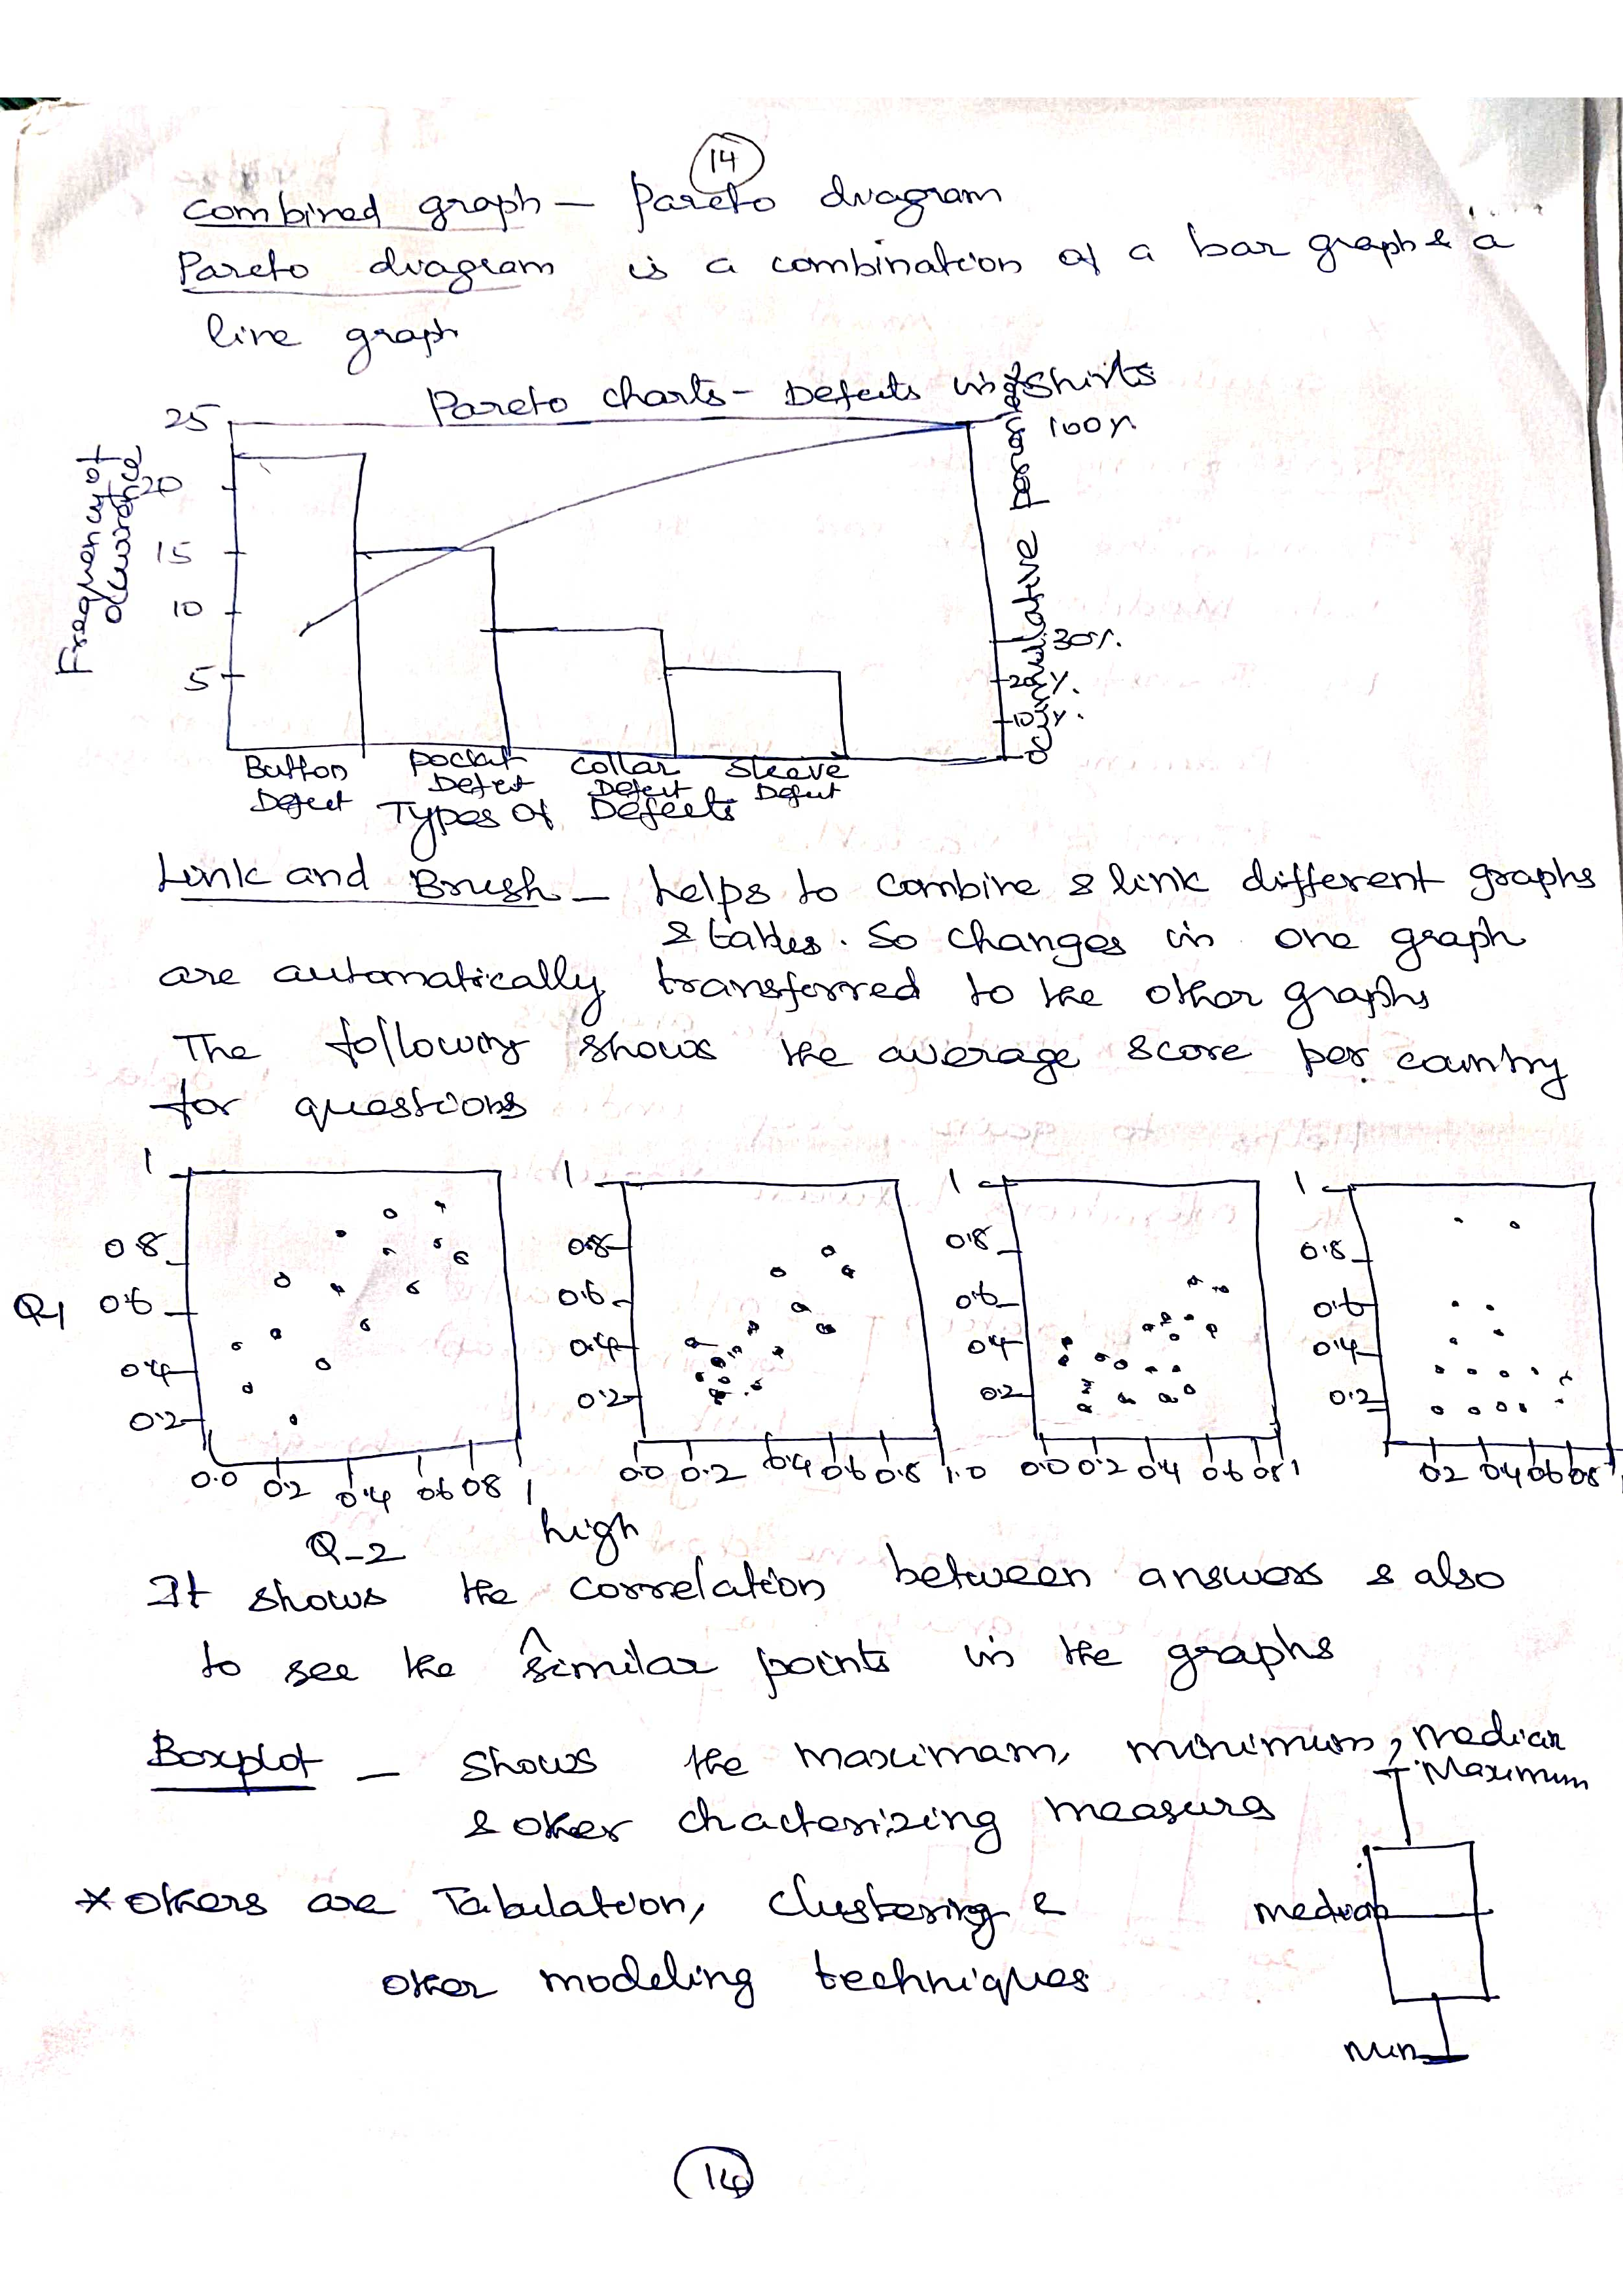 14
Combined graph - Pareto diagram
Pareto diagram is a combination of a bar graph & a
line graph
Pareto charts - Defects in Shirts
25
20
15
10
5
Frequency of
occurrence
100%
30%.
20%.
10%.
Button
Defect
Pocket
Defect
Collar
Defect
Sleeve
Defect
Types of Defects
Link and Brush - helps to combine & link different graphs
& tables. So changes in one graph
are automatically transferred to the other graphs
The following shows the average score per country
for questions
1
0.8
0.6
0.4
0.2
Q1
0.0 0.2 0.4 0.6 0.8 1
Q-2
1
0.8
0.6
0.4
0.2
0.0 0.2 0.4 0.6 0.8 1.0
1
0.8
0.6
0.4
0.2
0.0 0.2 0.4 0.6 0.8 1
1
0.8
0.6
0.4
0.2
0.2 0.4 0.6 0.8 1
It shows the high correlation between answers & also
to see the similar points in the graphs
Boxplot - shows the maximam, minimum, median
& other chacterizing measura
Maximum
median
min
* Others are Tabulation, Clustering &
other modeling techniques
14